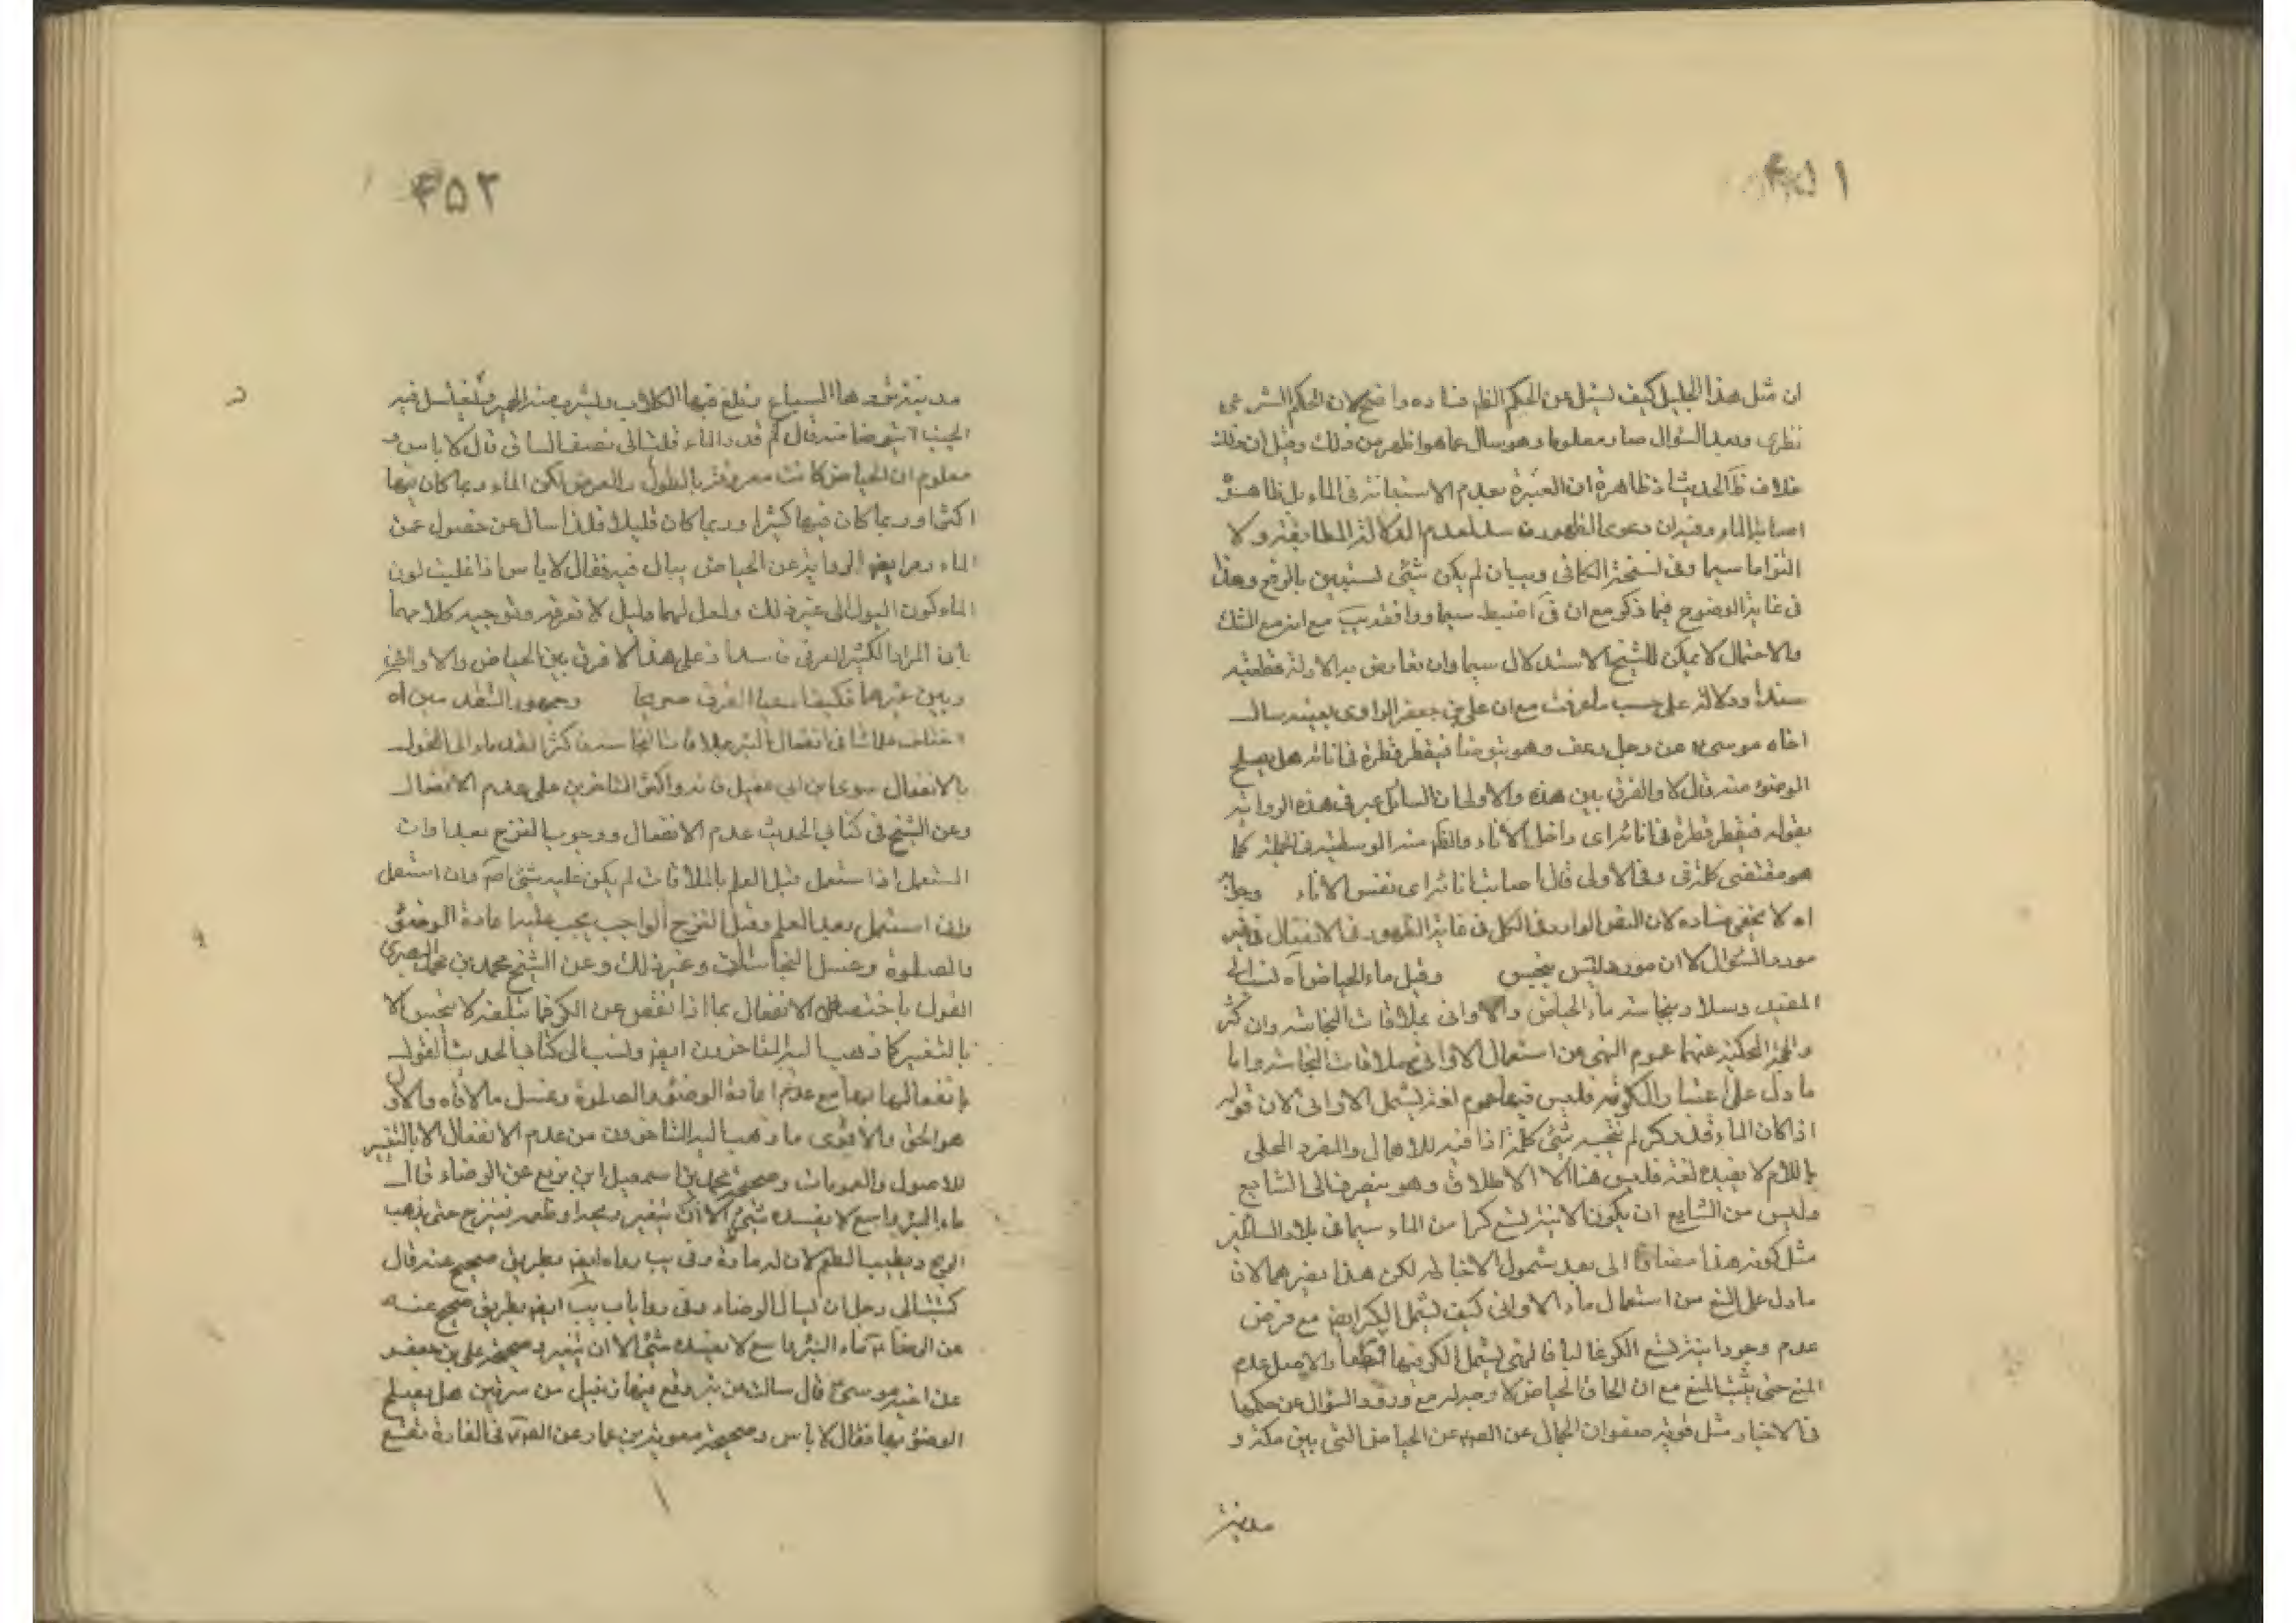 ۴۵۱
ان مثل هذا الجليل كيف يسئل عن الحكم الظم فساده واضح لان الحكم الشرعى
نظرى وبعد السؤال صار معلوما وهو سال عما هو اظهر من ذلك وقيل ان ذلك
خلاف ظ الحديث اذ ظاهره ان العبرة بعدم الاستبانة فى الماء بل ظاهره
اصابة الماء وفيه ان دعوى الظهور لعدم الدلالة المطابقة ولا
التزاما سيما وفى نسخة الكافى وبيان لم يكن شئ يستبين بالرفع وهذا
فى غاية الوضوح فيما ذكر مع ان فى اضبط سيما ووافقه يب مع انه مع الشك
والاحتمال لا يمكن للشيخ الاستدلال سيما وان تعارض به الادلة قطعية
سندا ودلالة على حسب ما عرفت مع ان على بن جعفر الراوى بعينه سال
اخاه موسى ع عن رجل رعف وهو يتوضا فيقطر قطرة فى انائه هل يصلح
الوضوء منه قال لا والفرق بين هذه والاولى ان السائل عبر فى هذه الرواية
بقوله فيقطر قطرة فى انائه اى داخل الاناء والظم منه الوسطية فى الجملة كما
هو مقتضى كلمة فى وفى الاولى قال اصابت انائه اى نفس الاناء
اه لا يخفى فساده لان النص الوارد فى الكل فى غاية الظهور فى الانفعال فى غير
مورد السؤال لا ان مورده ليس بنجس وقيل ماء الحياض اه نسب الى
المفيد وسلار نجاسة ماء الحياض والاوانى بملاقات النجاسة وان كثر
والحجة المحكية عنهما عموم النهى عن استعمال الاوانى بملاقات النجاسة واما
ما دل على اعتبار الكرية فليس فيها عموم لغة ليشمل الاوانى لان قوله
اذا كان الماء قدر كر لم ينجسه شئ كلمة اذا فيه للاهمال والمفرد المحلى
باللام لا يفيده لغة فليس هنا الا الاطلاق وهو ينصرف الى الشايع
وليس من الشايع ان يكون الانية تسع كرا من الماء سيما فى بلاد السائلين
مثل كوفة هذا مضافا الى بعد شمول الاخبار له لكن هذا يضرهما لان
ما دل على المنع من استعمال ماء الاوانى كيف يشمل الكر ايضا مع فرض
عدم وجود انية تسع الكر غالبا فالنهى لا يشمل الكر فيها قطعا والاصل عدم
المنع حتى يثبت المنع مع ان الحاق الحياض لا وجه له مع ورود السؤال عن حكمها
فى الاخبار مثل قوية صفوان الجمال عن الصم عن الحياض التى بين مكة و
مدينة
۴۵۲
مدينة تردها السباع وتلغ فيها الكلاب وتشرب منه الحمير ويغتسل فيه
الجنب ايتوضا منه قال كم قدر الماء قلت الى نصف الساق قال لا باس و
معلوم ان الحياض كانت معروفة بالطول والعرض لكن الماء ربما كان فيها
اكثر وربما كان فيها كثيرا وربما كان قليلا فلذا سال عن حصول عمق
الماء الرواية عن الحياض يبال فيه فقال لا باس اذا غلب لون
الماء كون البول الى غير ذلك ولعل لهما دليل لا نعرفه وتوجيه كلامهما
بان المراد الكثير العرفى فاسد اذ على هذا لا فرق بين الحياض والاوانى
وبين غيرهما فكيف الفرق صريحا وجمهور
اختلف علمائنا فى انفعال البئر بملاقات النجاسة فاكثر القدماء الى القول
بالانفعال سوى ابن ابى عقيل فانه واكثر المتاخرين على عدم الانفعال
وعن الشيخ فى كتابى الحديث عدم الانفعال ووجوب النزح تعبدا وان
المستعمل اذا استعمل قبل العلم بالملاقات لم يكن عليه شئ اصم وان استعمل
وان استعمل بعد العلم وقبل النزح الواجب يجب عليه اعادة الوضوء
والصلوة وغسل النجاسات وغير ذلك وعن الشيخ محمد بن محمد البصرى
القول باختصاص الانفعال بما اذا نقص عن الكر فما بلغه لا ينجس الا
بالتغير كما ذهب اليه المتاخرون ايضا ونسب الى كتابى الحديث القول
بانفعالها بها مع عدم اعادة الوضوء والصلوة وغسل ما لاقاه والاول
هو الحق والاقوى ما ذهب اليه المتاخرون من عدم الانفعال الا بالتغير
للاصول والعمومات وصحيحة محمد بن اسمعيل ابن بزيع عن الرضاء قال
ماء البئر واسع لا يفسده شئ الا ان يتغير ريحه او طعمه فينزح حتى يذهب
الريح ويطيب الطعم لان له مادة وفى يب رواه ايضا بطريق صحيح عنه قال
كتبت الى رجل ان يسال الرضاء وفى روايات يب ايضا بطريق صحيح عنه
عن الرضا ع ماء البئر واسع لا يفسده شئ الا ان يتغير وصحيحة على بن جعفر
عن اخيه موسى ع قال سالت عن بئر وقع فيها زنبيل من سرقين هل يصلح
الوضوء بها فقال لا باس وصحيحة معوية بن عمار عن الصم فى الفارة تقع